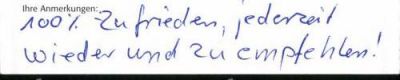 Ihre Anmerkungen:
100% zufrieden, jederzeit
wieder und zu empfehlen!